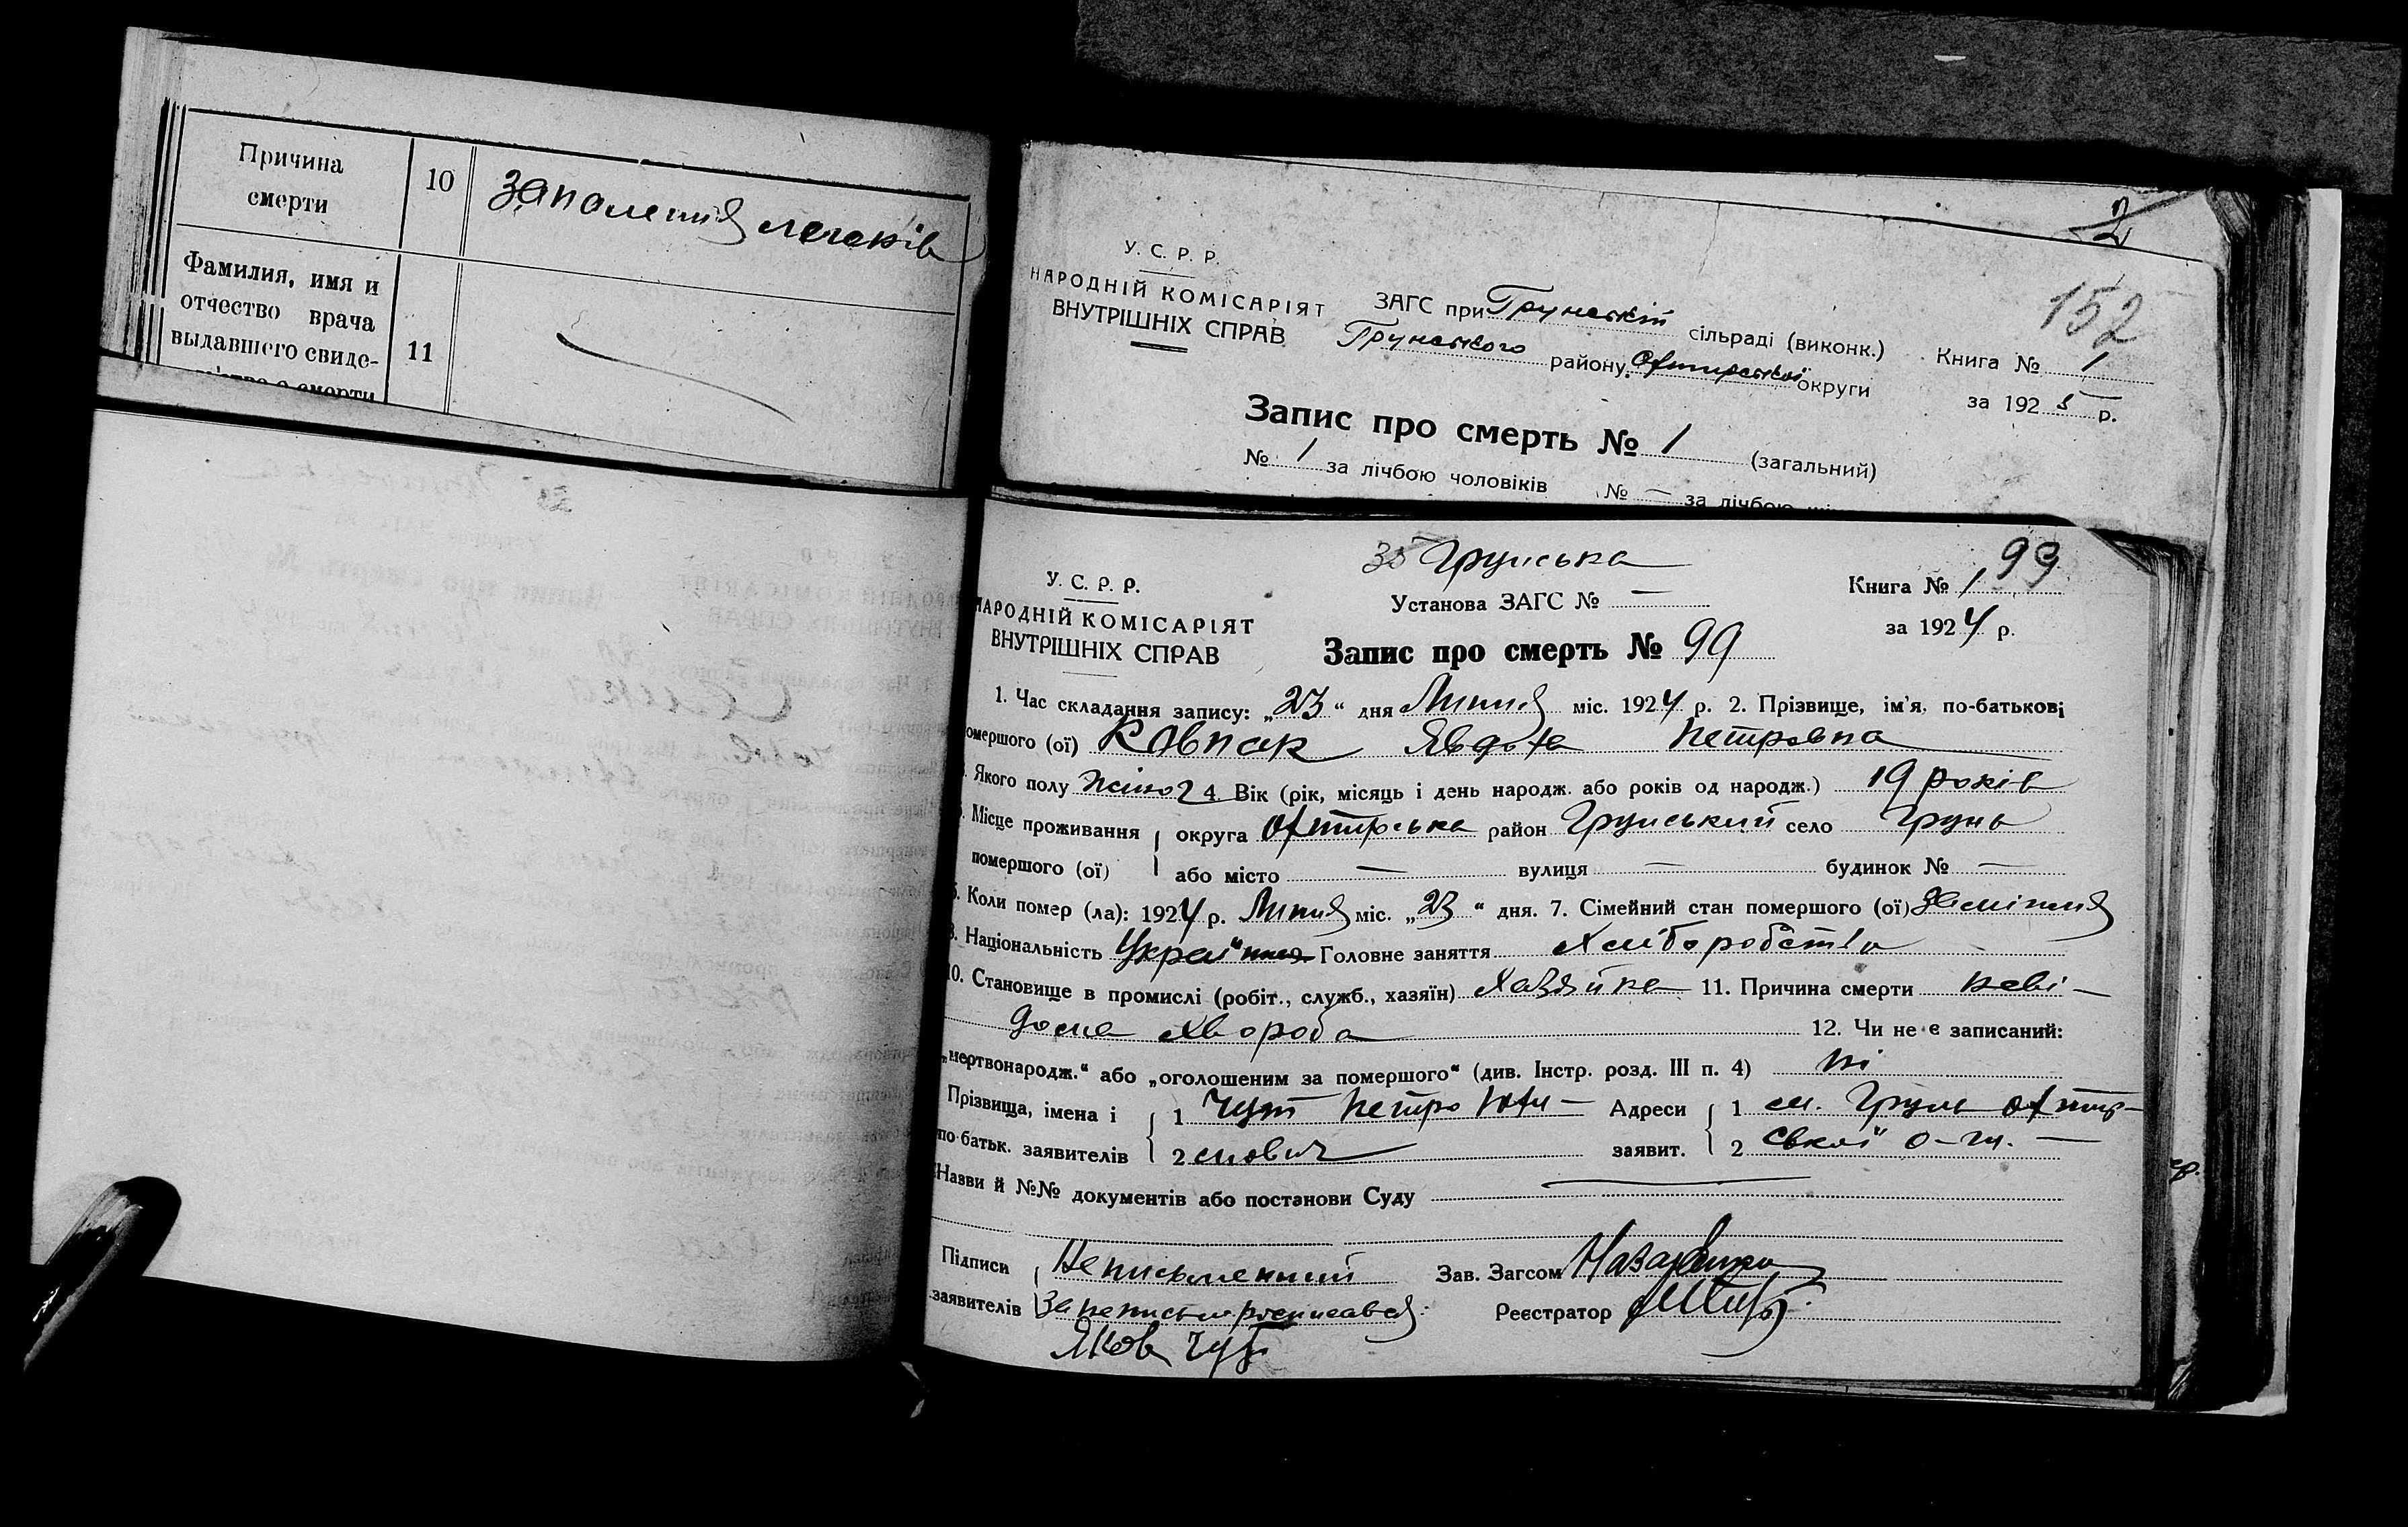 Причина
смерти
10
запалення легенів
Фамилия, имя и
отчество врача
выдавшего свиде-
11
2
152
У. С. Р. Р.
НАРОДНІЙ КОМІСАРІЯТ
ВНУТРІШНІХ СПРАВ
ЗАГС при Грунській сільраді (виконк.)
Грунського району Охтирської округи
Книга № 1
за 1925 р.
Запис про смерть № 1 (загальний)
№ 1 за лічбою чоловіків № — за лічбою
Грунська
99
У. С. Р. Р.
НАРОДНІЙ КОМІСАРІЯТ
ВНУТРІШНІХ СПРАВ
Установа ЗАГС № —
Книга № 1
за 1924 р.
Запис про смерть № 99
1. Час складання запису: „23“ дня Липня міс. 1924 р. 2. Прізвище, ім'я, по-батькові
омершого (ої) Ковпак Явдоха Петровна
Якого полу жіноч 4. Вік (рік, місяць і день народж. або років од народж.) 19 років
Місце проживання округа Охтирська район Грунський село Грунь
помершого (ої) або місто — вулиця — будинок № —
Коли помер (ла): 1924 р. Липня міс. „23“ дня. 7. Сімейний стан помершого (ої) Заміжня
Національність Українка Головне заняття Хліборобство
10. Становище в промислі (робіт., служб., хазяїн) Хазяйка 11. Причина смерти неві-
дома хвороба 12. Чи не є записаний:
„мертвонародж.“ або „оголошеним за помершого“ (див. Інстр. розд. III п. 4) ні
Прізвища, імена і 1 Чуб Петро Юхи- Адреси 1 см. Грунь Охтир-
по батьк. заявителів 2 мович заявит. 2 ської о-ги. —
Назви й №№ документів або постанови Суду
Підписи Неписьменний Зав. Загсом
заявителів За неписьм. росписався Реєстратор
Яков Чуб